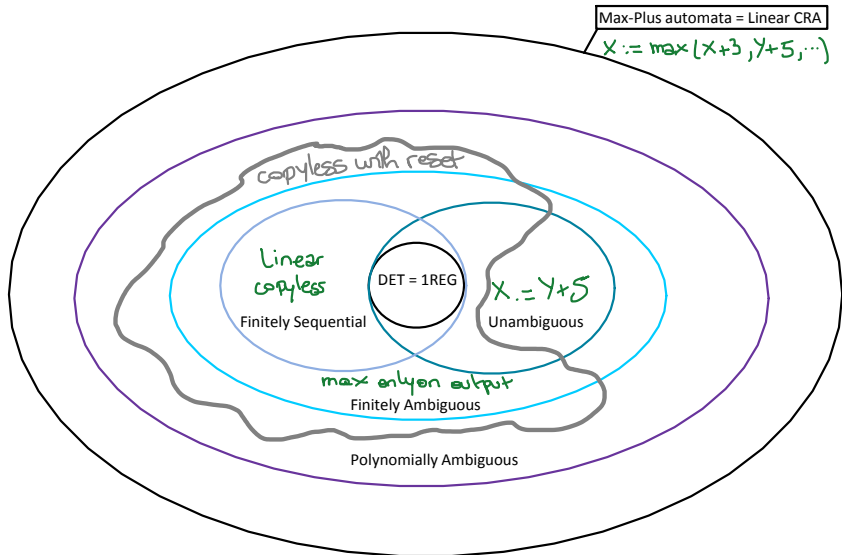 Max-Plus automata = Linear CRA
X := max(X+3, Y+5, ...)
copyless with reset
Linear
copyless
DET = 1REG
X := Y+5
Finitely Sequential
Unambiguous
max only on output
Finitely Ambiguous
Polynomially Ambiguous